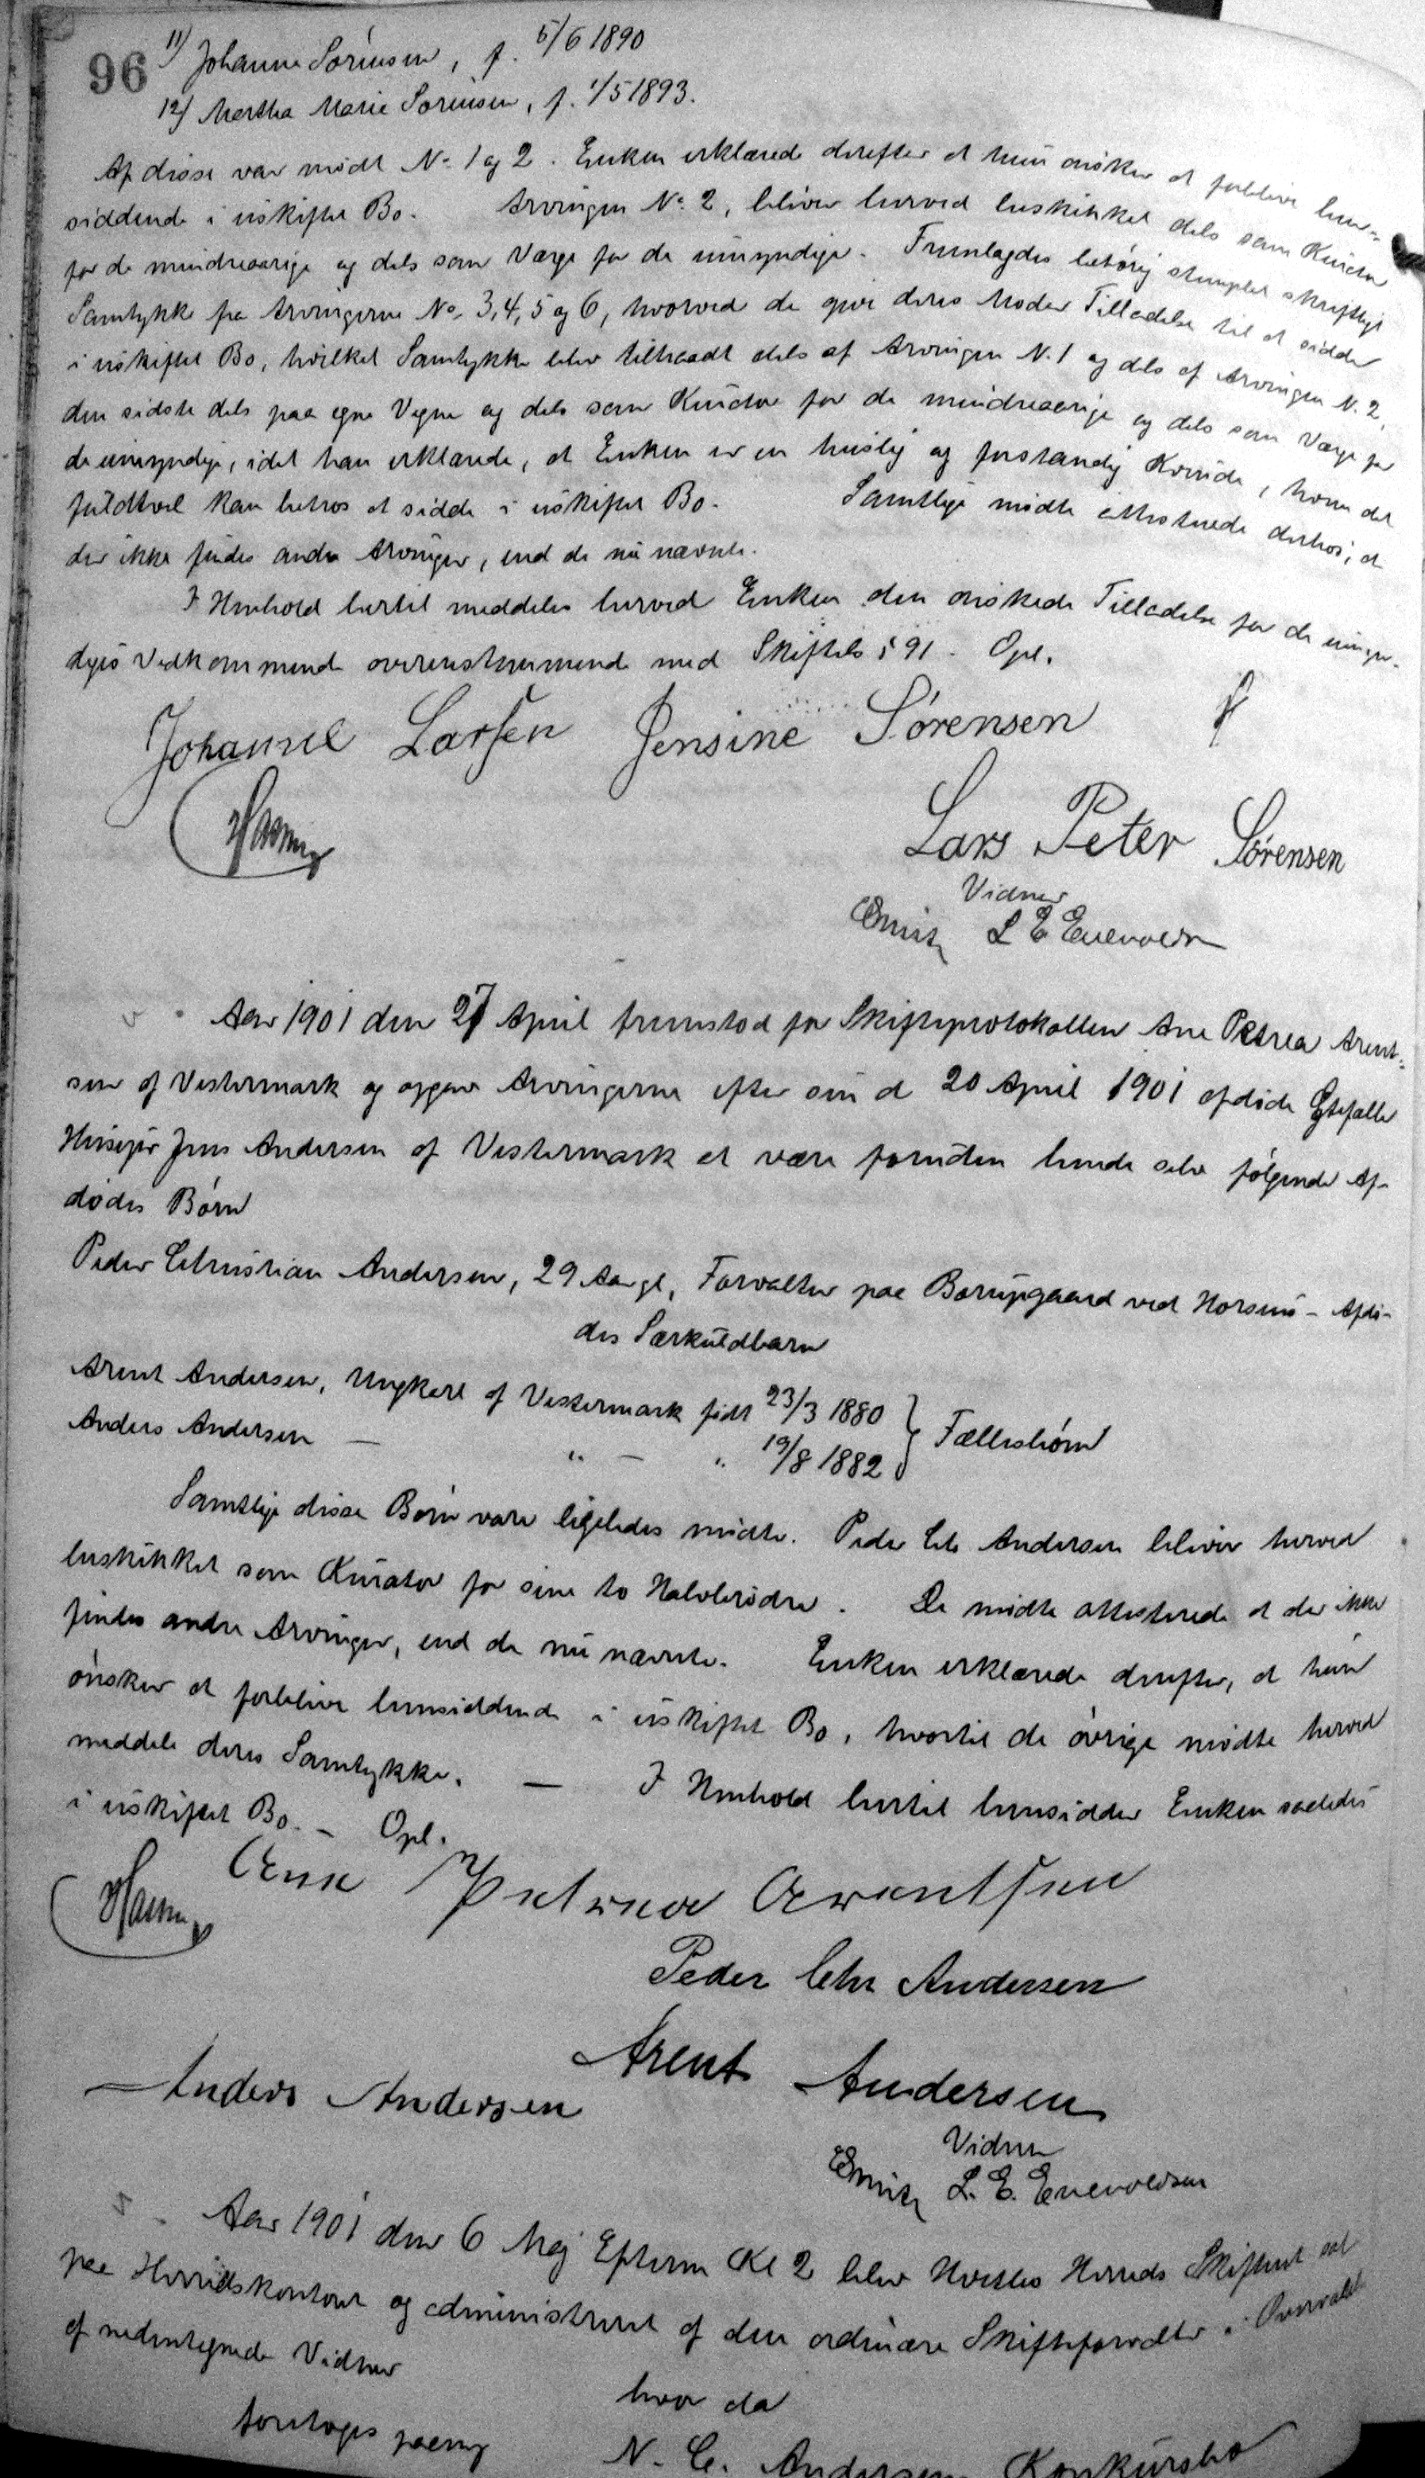 96
11) Johanne Sørensen, f. 5/6 1890
12) Martha Marie Sørensen, f. 1/5 1893.
Af disse var mødt No 1 og 2. Enken erklærede derefter at hun ønsker at forblive hen-
siddende i uskiftet Bo. Arvingen No. 2, bliver herved beskikket dels som Kurator
for de mindreaarige og dels som Værge for de umyndige. Fremlagdes behørig stemplet skriftligt
Samtykke fra Arvingerne No. 3, 4, 5 og 6, hvorved de give deres Moder Tilladelse til at sidde
i uskiftet Bo, hvilket Samtykke blev tiltraadt dels af Arvingen N. 1 og dels af Arvingen N. 2,
den sidste dels paa egne Vegne og dels som Kurator for de mindreaarige og dels som Værge for
de umyndige, idet han erklærede, at Enken er en huslig og forstandig Kvinde, hvem det
fuldtvel kan betros at sidde i uskiftet Bo. Samtlige mødte attesterede derhos, at
der ikke findes andre Arvinger, end de nu nævnte.
I Henhold hertil meddeles herved Enken den ønskede Tilladelse for de umyn-
diges Vedkommende overensstemmende med Skiftels § 91 - Opl.
Johanne Larsen Jensine Sørensen
Lars Peter Sørensen
Vidner
L E Enevoldsen
Aar 1901 den 27 April fremstod for Skifteprotokollen Ane Petrea Arent-
sen af Vestermark og opgav Arvingerne efter sin d 20 April 1901 afdøde Ægtefælle
Husejer Jens Andersen af Vestermark at være foruden hende selv følgende Af-
dødes Børn
Peder Christian Andersen, 29 Aar gl, Forvalter paa Borupgaard ved Horsens - Afdø-
des Særkuldbarn
Arent Andersen, Ungkarl af Vestermark født 23/3 1880 } Fællesbørn
Anders Andersen — " — " 19/8 1882
Samtlige disse Børn vare ligeledes mødte. Peder Chr Andersen bliver herved
beskikket som Kurator for sine to Halvbrødre. De mødte attesterede at der ikke
findes andre Arvinger, end de nu nævnte. Enken erklærede derefter, at hun
ønsker at forblive hensiddende i uskiftet Bo, hvortil de øvrige mødte herved
meddele deres Samtykke. — I Henhold hertil hensidder Enken saaledes
i uskiftet Bo. - Opl.
Ane Petrea Arentsen
Peder Chr Andersen
Arent Andersen
Anders Andersen
Vidner
L. E. Enevoldsen
Aar 1901 den 6 Maj Efterm Kl 2 blev Herreds Skifteret sat
paa Herredskontoret og administreret af den ordinære Skifteforvalter i Overværelse
af nedentegnede Vidner
hvor da
foretoges paany
N. C. Andersens Konkursbo